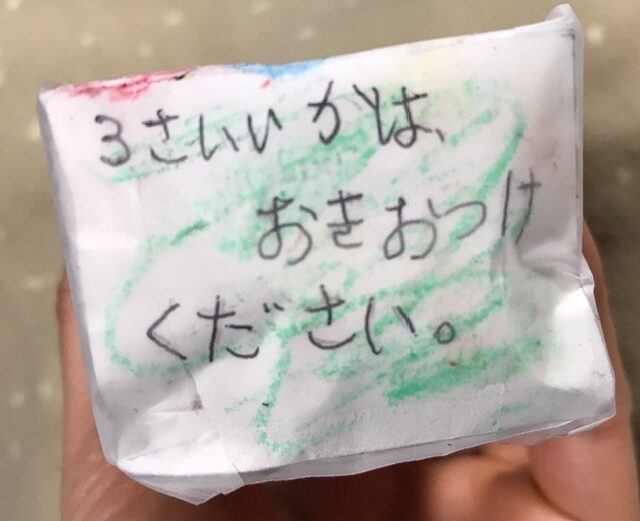 3さいいかは、
おきおつけ
ください。